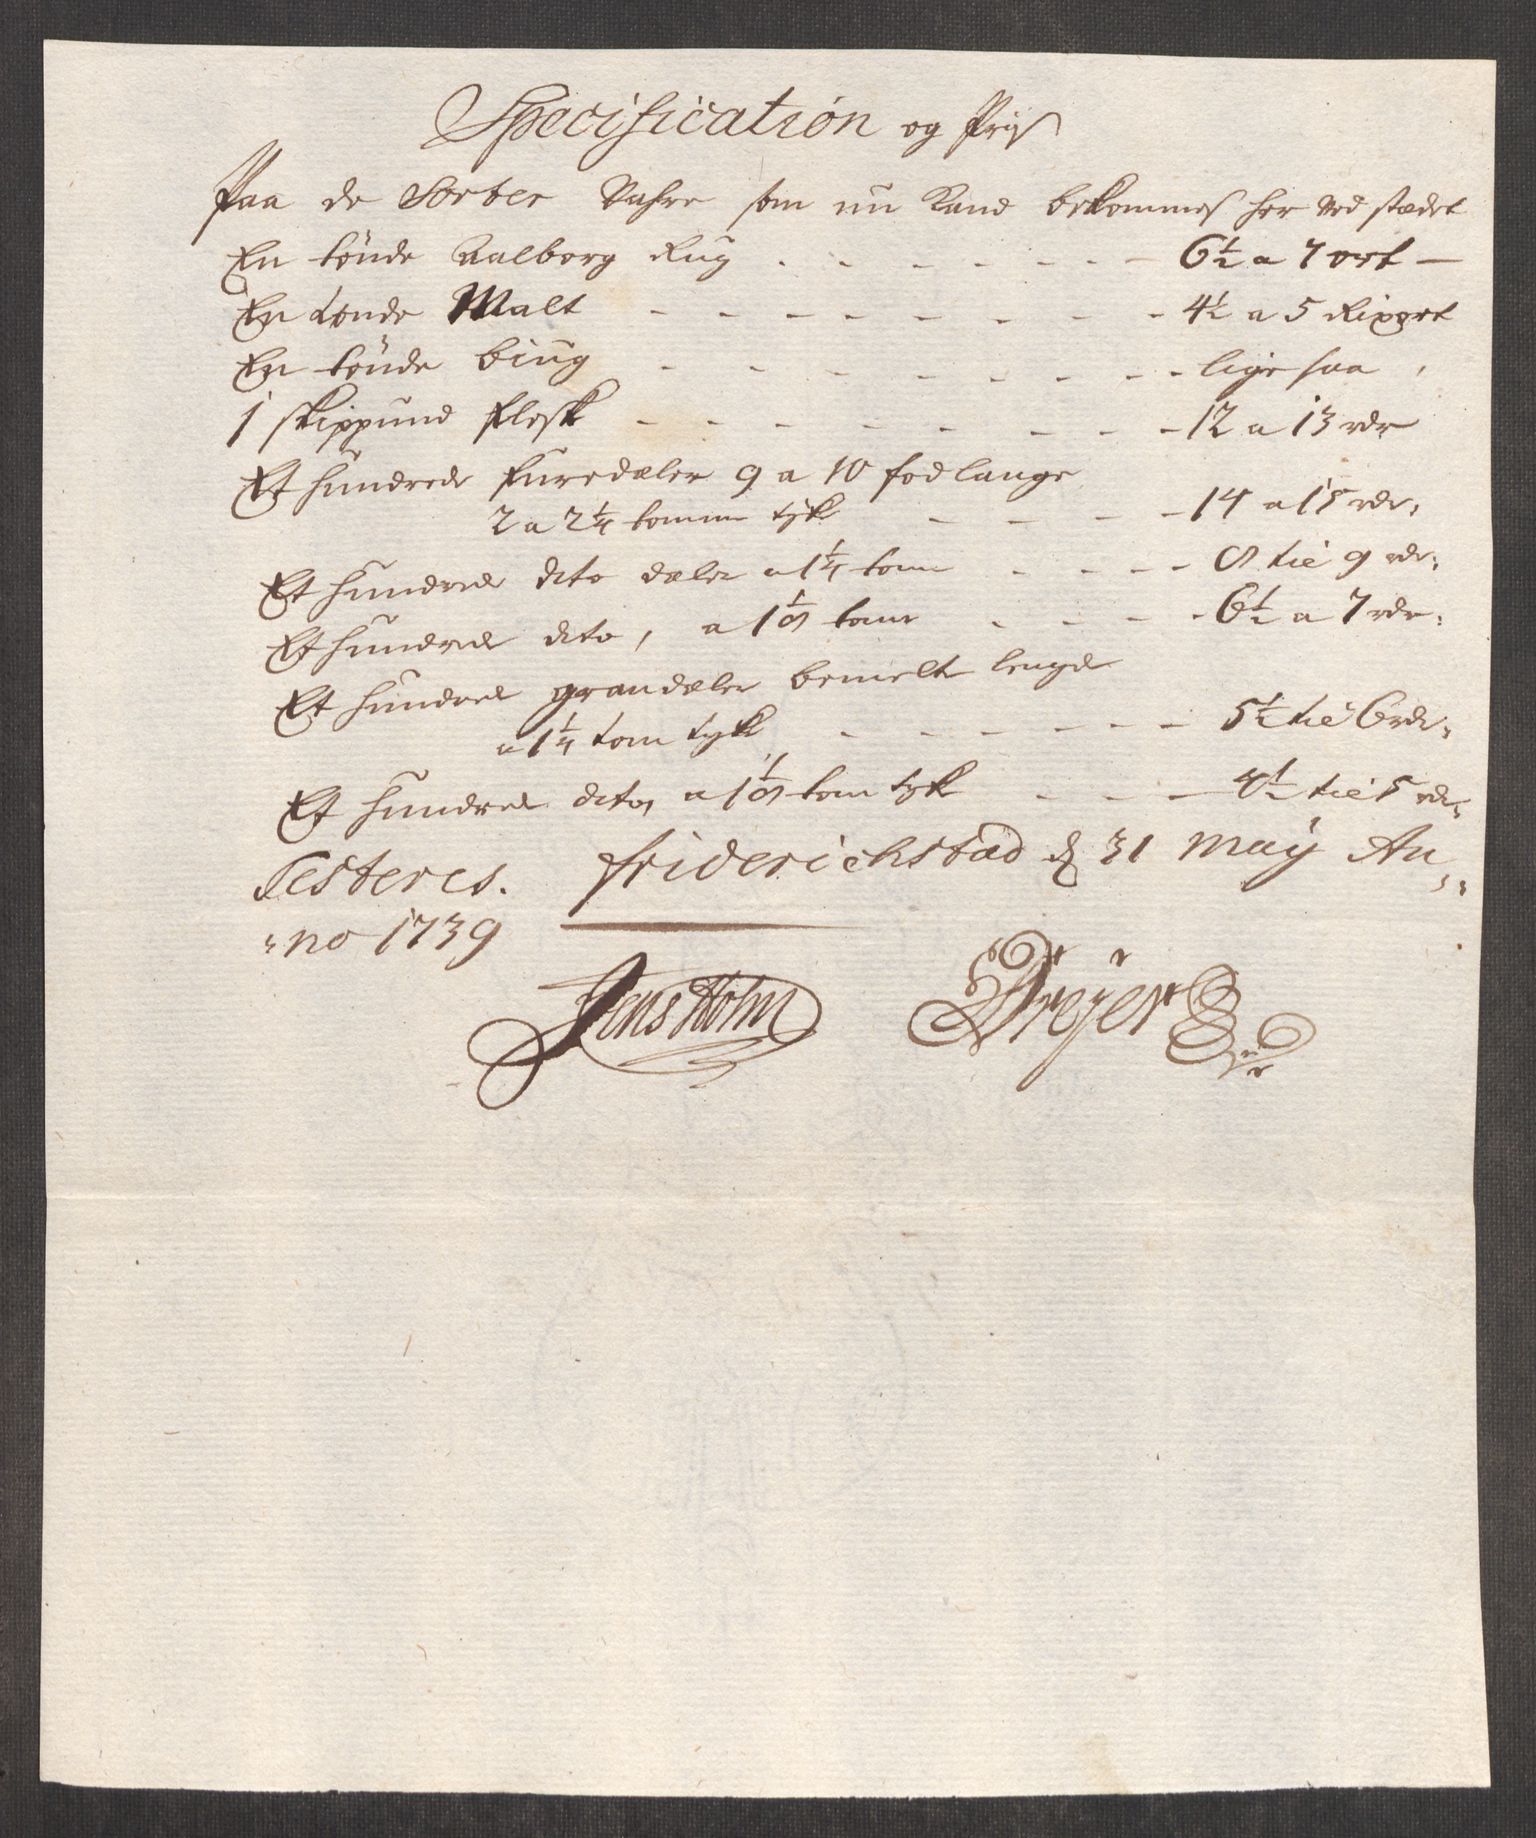 Specification og Priſ
Paa de Sorter Vahre som nu Kand bekommeſ her ved stædet
En tönde Aalborg Rug - - - - - - 6½ a 7 ort -
En tonde Malt - - - - - - - - 4½ a 5 Rixort
En tönde biug - - - - - - - - lige saa
1 skippund flesk - - - - - - - - 12 a 13 rdr
Et hundrede furedæler 9 a 10 fod lange
2 a 2¼ tomme tyk - - - - 14 a 15 rdr,
Et hundred dito dæler a 1¼ tom - - - - 8 tie 9 rdr,
Et hundred dito, a 1⅛ tomr - - - - 6½ a 7 rdr,
Et hundred grandæler bemelte lengde
a 1¼ tom tyk - - - - - - 5½ tie 6 rdr,
Et hundred dito, a 1⅛ tom tyk - - - 4½ tie 5 rdr,
Testeres. friderichstad d 31 May An,,
"no 1739
Jens Holm Dreÿer